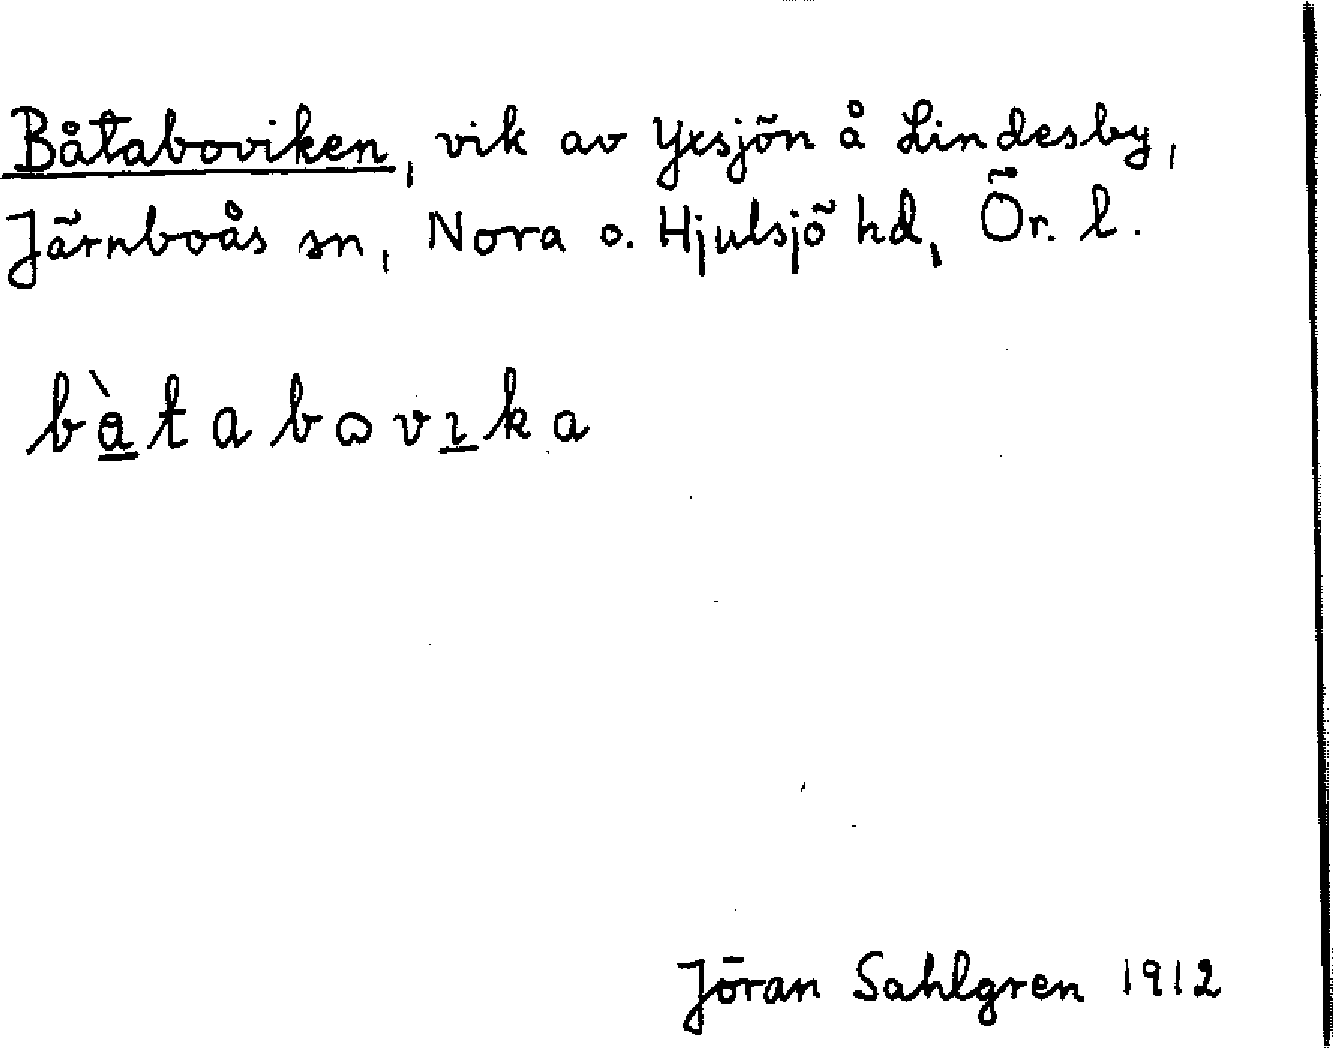 Båtaboviken, vik av Yxsjön å Lindesby,
Järnboås sn, Nora o. Hjulsjö hd, Ör. l.
bàtabovıka
Jöran Sahlgren 1912